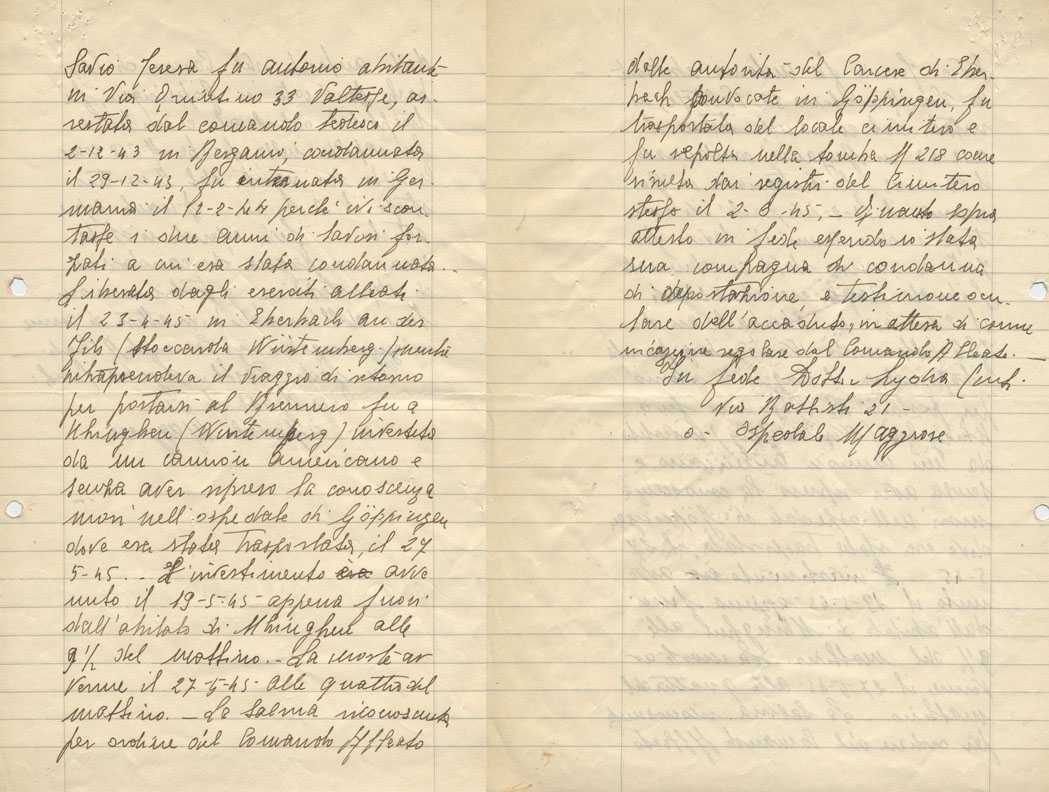 Savio Teresa fu Antonio abitante
in Via Quintino 33 Valtesse, ar-
restata dal comando tedesco il
2-12-43 in Bergamo, condannata
il 29-12-43, fu internata in Ger-
mania il 12-2-44 perché ivi scon-
tasse i due anni di lavori for-
zati a cui era stata condannata.
Liberata dagli eserciti alleati
il 23-4-45 in Eberbach an der
Fils (Stoccarda Würtemberg) mentre
intraprendeva il viaggio di ritorno
per portarsi al Brennero fu a
(Würtemberg) investita
da un camion americano e
senza aver ripreso la conoscenza
morì nell'ospedale di Göppingen
dove era stata trasportata, il 27
5-45. - L'investimento era avve
nuto il 19-5-45 appena fuori
dall'abitato di alle
9½ del mattino. - La morte av
venne il 27-5-45 alle quattro del
mattino. - La salma riconosciuta
per ordine del Comando Alleato
dalle autorità del Carcere di Eber-
bach convocate in Göppingen, fu
trasportata del locale cimitero e
fu sepolta nella tomba N 218 come
risulta dai registri del Cimitero
stesso il 2-6-45. - Quanto sopra
attesto in fede essendo io stata
sua compagna di condanna
di deportazione e testimone ocu-
lare dell'accaduto, in attesa di comu
nicazione regolare dal Comando Alleato.
In fede Dott. Lydia
Via Battisti 21 -
o - Ospedale Maggiore